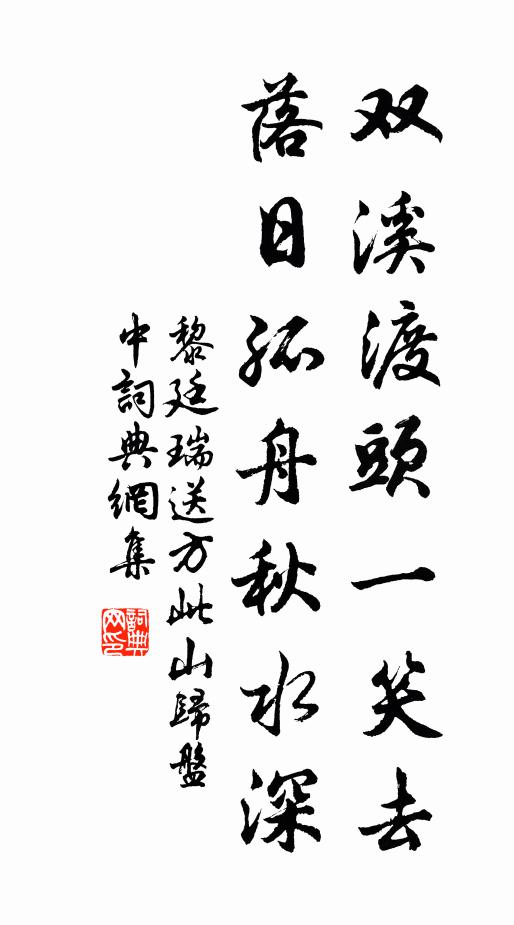 双溪渡頭一笑去
落日孤舟秋水深
黎廷瑞送方此山歸盤
中詞典網集
詞典
网印